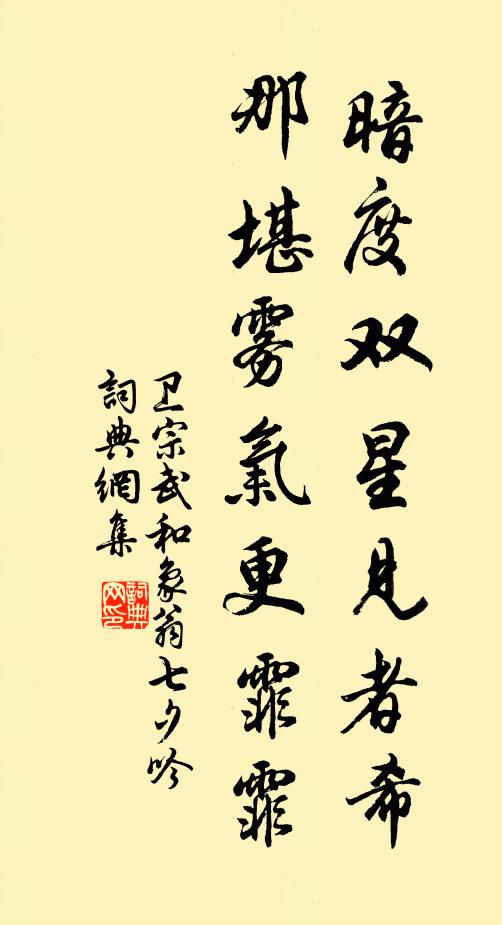 暗度双星見者希
那堪雾氣更霏霏
卫宗武和象翁七夕吟
詞典網集
詞典网印